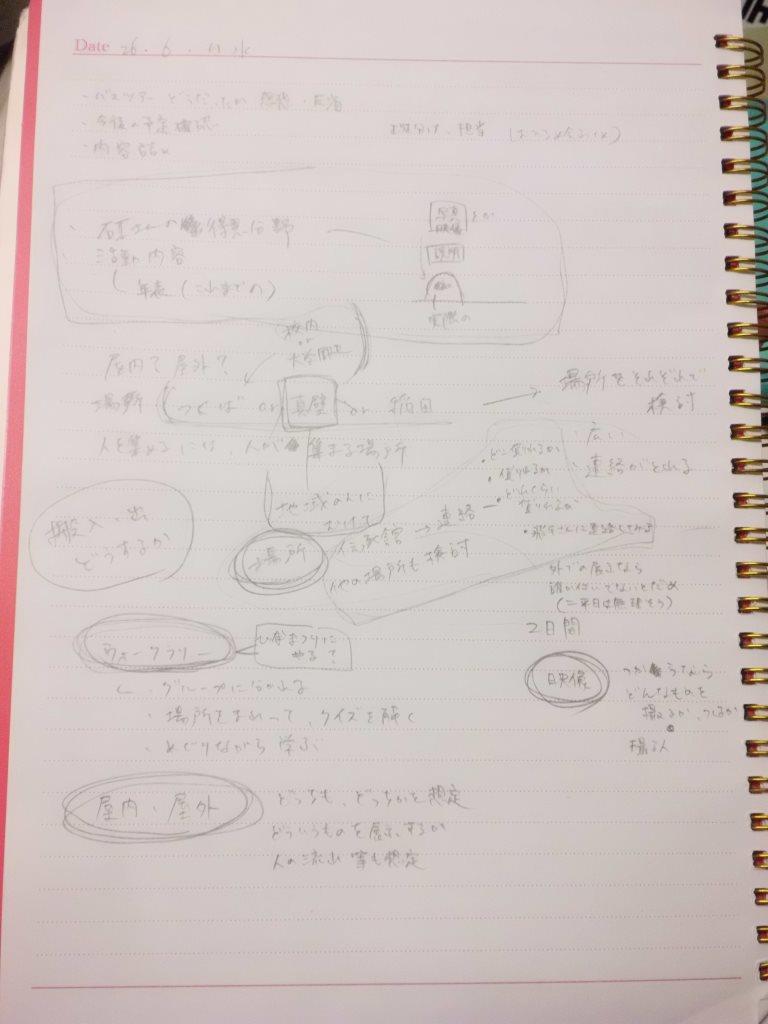 Date 26. 6. 11 水
・バスツアー どうだったか 感想・反省
・今後の予定確認
・内容
担当
・石工さんの得意分野
・活動内容
年表（これまでの）
写真
映像
とか
説明
実際の
校内
or
屋内？屋外？
場所 つくば or 真壁 or 稲田 → 場所をそれぞれで
検討
人を集めるには、人が集まる場所
・広い
・連絡がとれる
地域の人に
むけて
・どこ借りれるか
・借りれるか
・どれくらい
借りれるか
搬入・出
どうするか
場所 伝承館 → 連絡
他の場所も検討
外での展示なら
誰か付いてないとだめ
(→平日は無理そう)
2日間
ウォークラリー
ひなまつりに
やる？
・グループに分かれる
・場所をまわって、クイズを解く
・めぐりながら学ぶ
映像
つかうなら
どんなものを
撮るか、つくるか
撮る人
屋内・屋外
どっちも、どっちかを想定
どういうものを展示するか
人の流れ等も想定